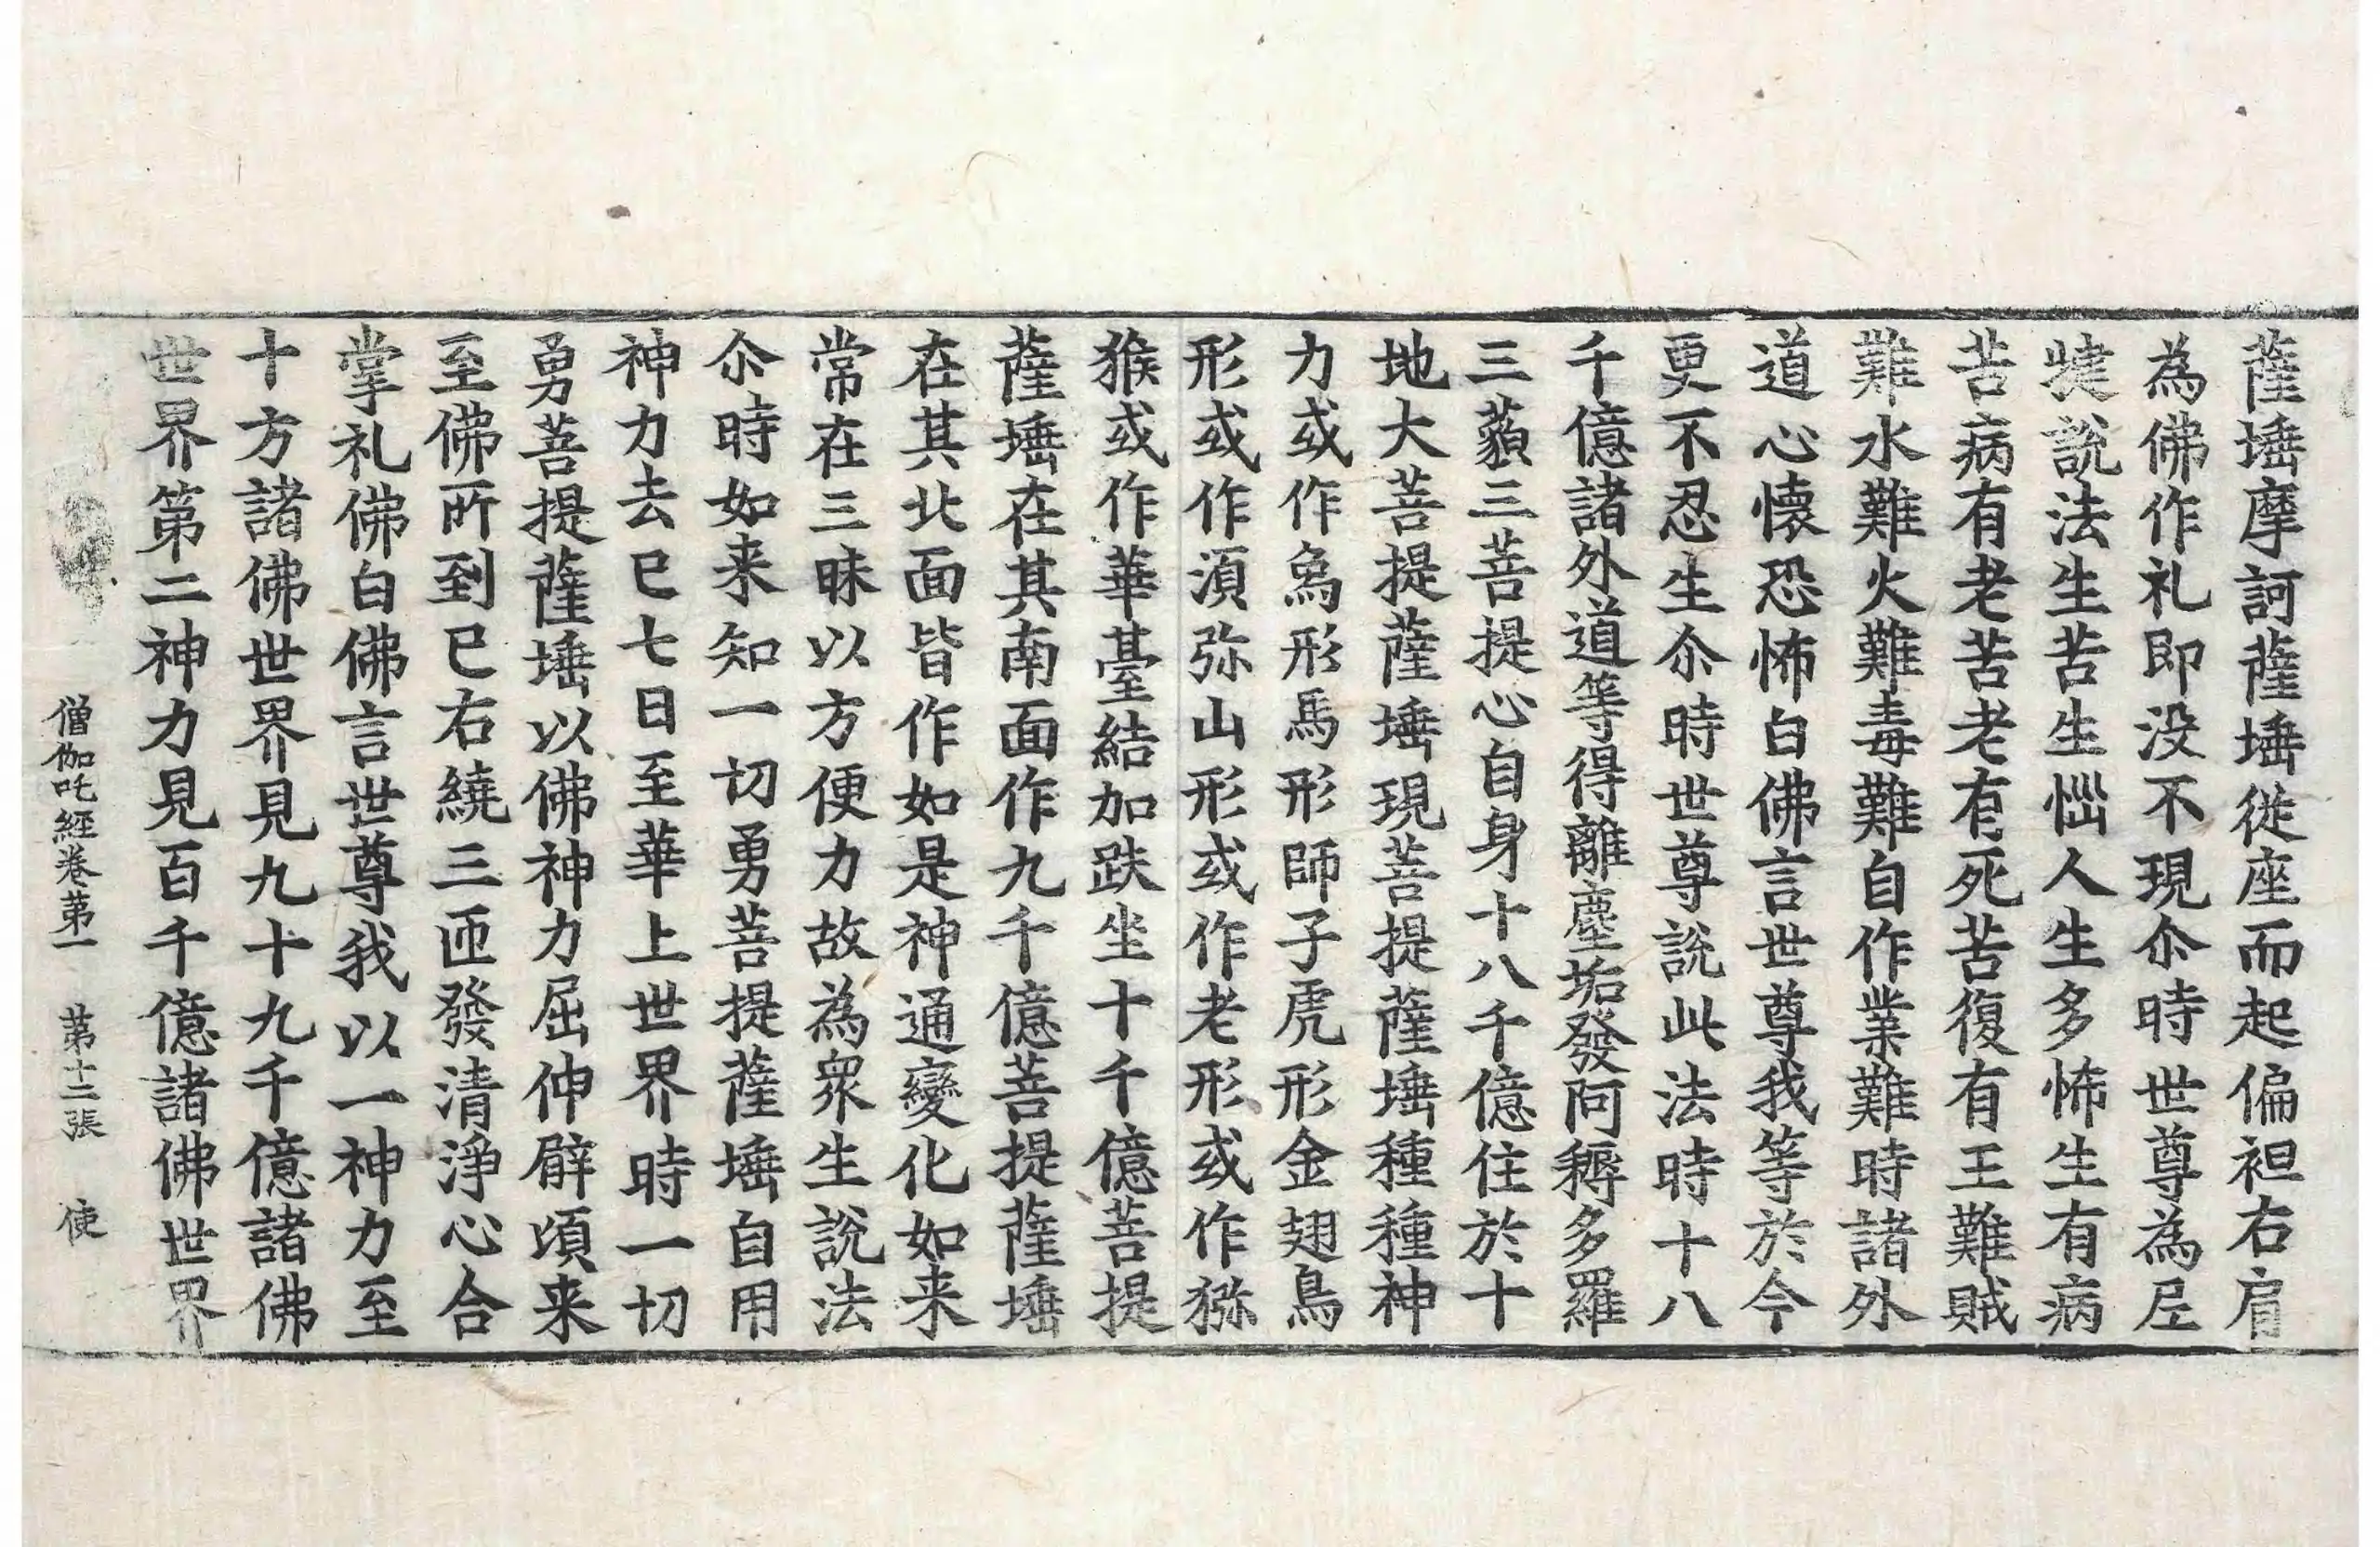 薩埵摩訶薩埵從座而起偏袒右肩
為佛作礼即没不現尒時世尊為尼
揵說法生苦生惱人生多怖生有病
苦病有老苦老有死苦復有王難賊
難水難火難毒難自作業難時諸外
道心懷恐怖白佛言世尊我等於今
更不忍生尒時世尊說此法時十八
千億諸外道等得離塵垢發阿耨多羅
三藐三菩提心自身十八千億住於十
地大菩提薩埵現菩提薩埵種種神
力或作象形馬形師子虎形金翅鳥
形或作湏弥山形或作老形或作猕
猴或作華臺結加趺坐十千億菩提
薩埵在其南面作九千億菩提薩埵
在其北面皆作如是神通變化如来
常在三昧以方便力故為衆生說法
尒時如来知一切勇菩提薩埵自用
神力去已七日至華上世界時一切
勇菩提薩埵以佛神力屈伸臂頃来
至佛所到已右繞三匝發清淨心合
掌礼佛白佛言世尊我以一神力至
十方諸佛世界見九十九千億諸佛
世界第二神力見百千億諸佛世界
僧伽吒經卷第一 第十二張 使